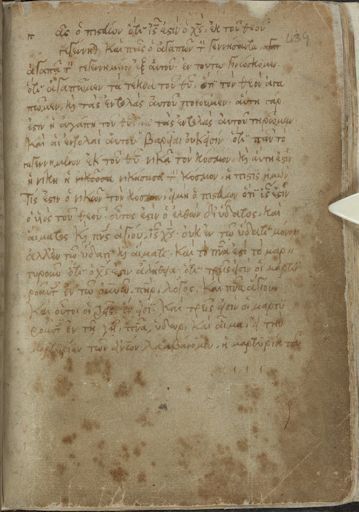 πας ὁ πιστεύων ὅτι ἰς ἐστὶν ὁ χς, ἐκ τοῦ θεοῦ 439
γεγέννηται καὶ πᾶς ὁ ἀγαπῶν τ γεννήσαντα
ἀγαπᾷ τ γεγεννημένον ἐξ αὐτοῦ· ἐν τούτω γινώσκομεν
ὅτι ἀγαπῶμεν τὰ τέκνα τοῦ θυ, ὅτ τὸν θεὸν ἀγα
πῶμεν, κ τὰς ἐντολὰς αὐτοῦ ποιοῦμεν· αὕτη γάρ
ἐστιν ἡ ἀγάπη τοῦ θυ, τὰς ἐντολὰς αὐτοῦ τηρῶμεν
καὶ αἱ ἐντολαὶ αὐτοῦ βαρεῖαι οὐκ εἰσὶν· ὅτι πᾶν τὸ
γεγεννημένον ἐκ τοῦ θυ νικᾶ τὸν κόσμον· κ αὕτη ἐστὶν
ἡ νίκη ἡ νικήσασα τ κόσμον, ἡ πίστις ἡμῶν
τίς ἐστιν ὁ νικῶν τὸν κόσμον, εἰ μὴ ὁ πιστεύων ὅτι ἰς ἐστὶν
ὁ υἱὸς τοῦ θεοῦ· οὗτός ἐστιν ὁ ἐλθὼν δι' ὕδατος, καὶ
αἵματος κ πνς ἁγίου, ἰς χς· οὐκ ἐν τῶ ὕδατι μόνον
ἀλλ' ἐν τῶ ὕδατι κ αἵματι· καὶ τὸ πνα ἐστὶ τὸ μαρ
τυροῦν ὅτι ὁ χς ἐστιν ἀλήθεια· ὅτι τρεῖς εἰσιν οἱ μαρτυ
ροῦντ ἐν τῶ οὐρανῶ, πηρ, λόγος, καὶ πνα ἅγιον
καὶ οὗτοι οἱ τρεῖς ἕν εἰσι· καὶ τρεῖς εἰσιν οἱ μαρτυ
ροῦντ ἐν τῆ γῆ, πνα, ὕδωρ, καὶ αἷμα· εἰ τὴν
μαρτυρίαν τῶν ἀνων λαμβάνομεν, ἡ μαρτυρία τοῦ